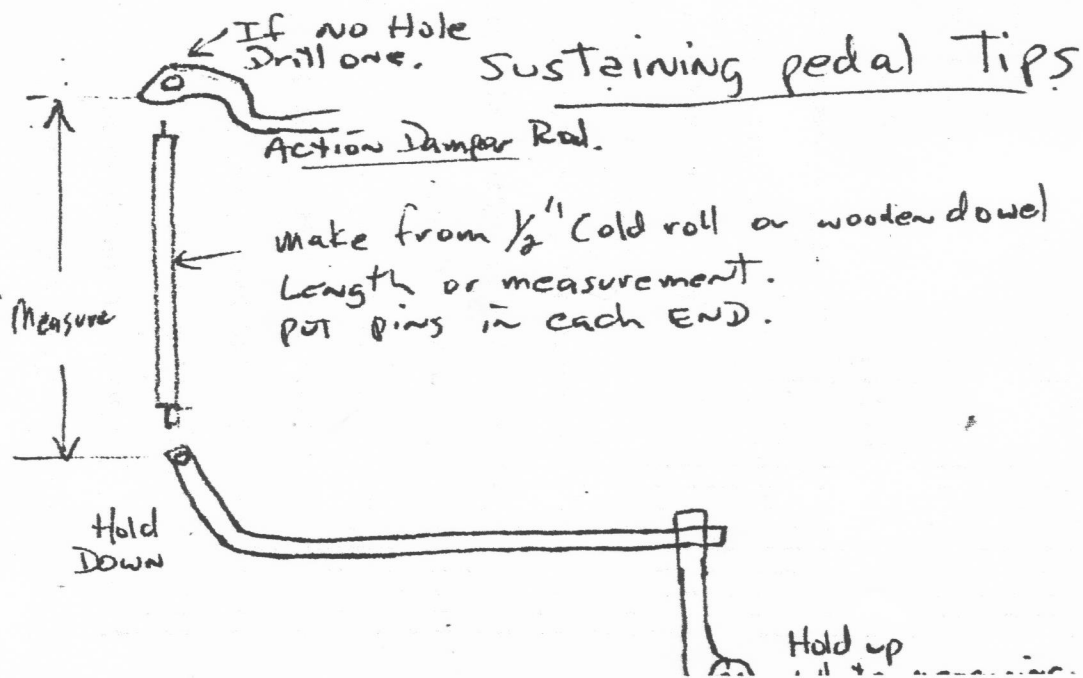 If no Hole
Drill one.
Sustaining pedal Tips
Action Damper Rod.
make from 1/2" Cold roll or wooden dowel
Length or measurement.
put pins in each END.
Measure
Hold
Down
Hold up